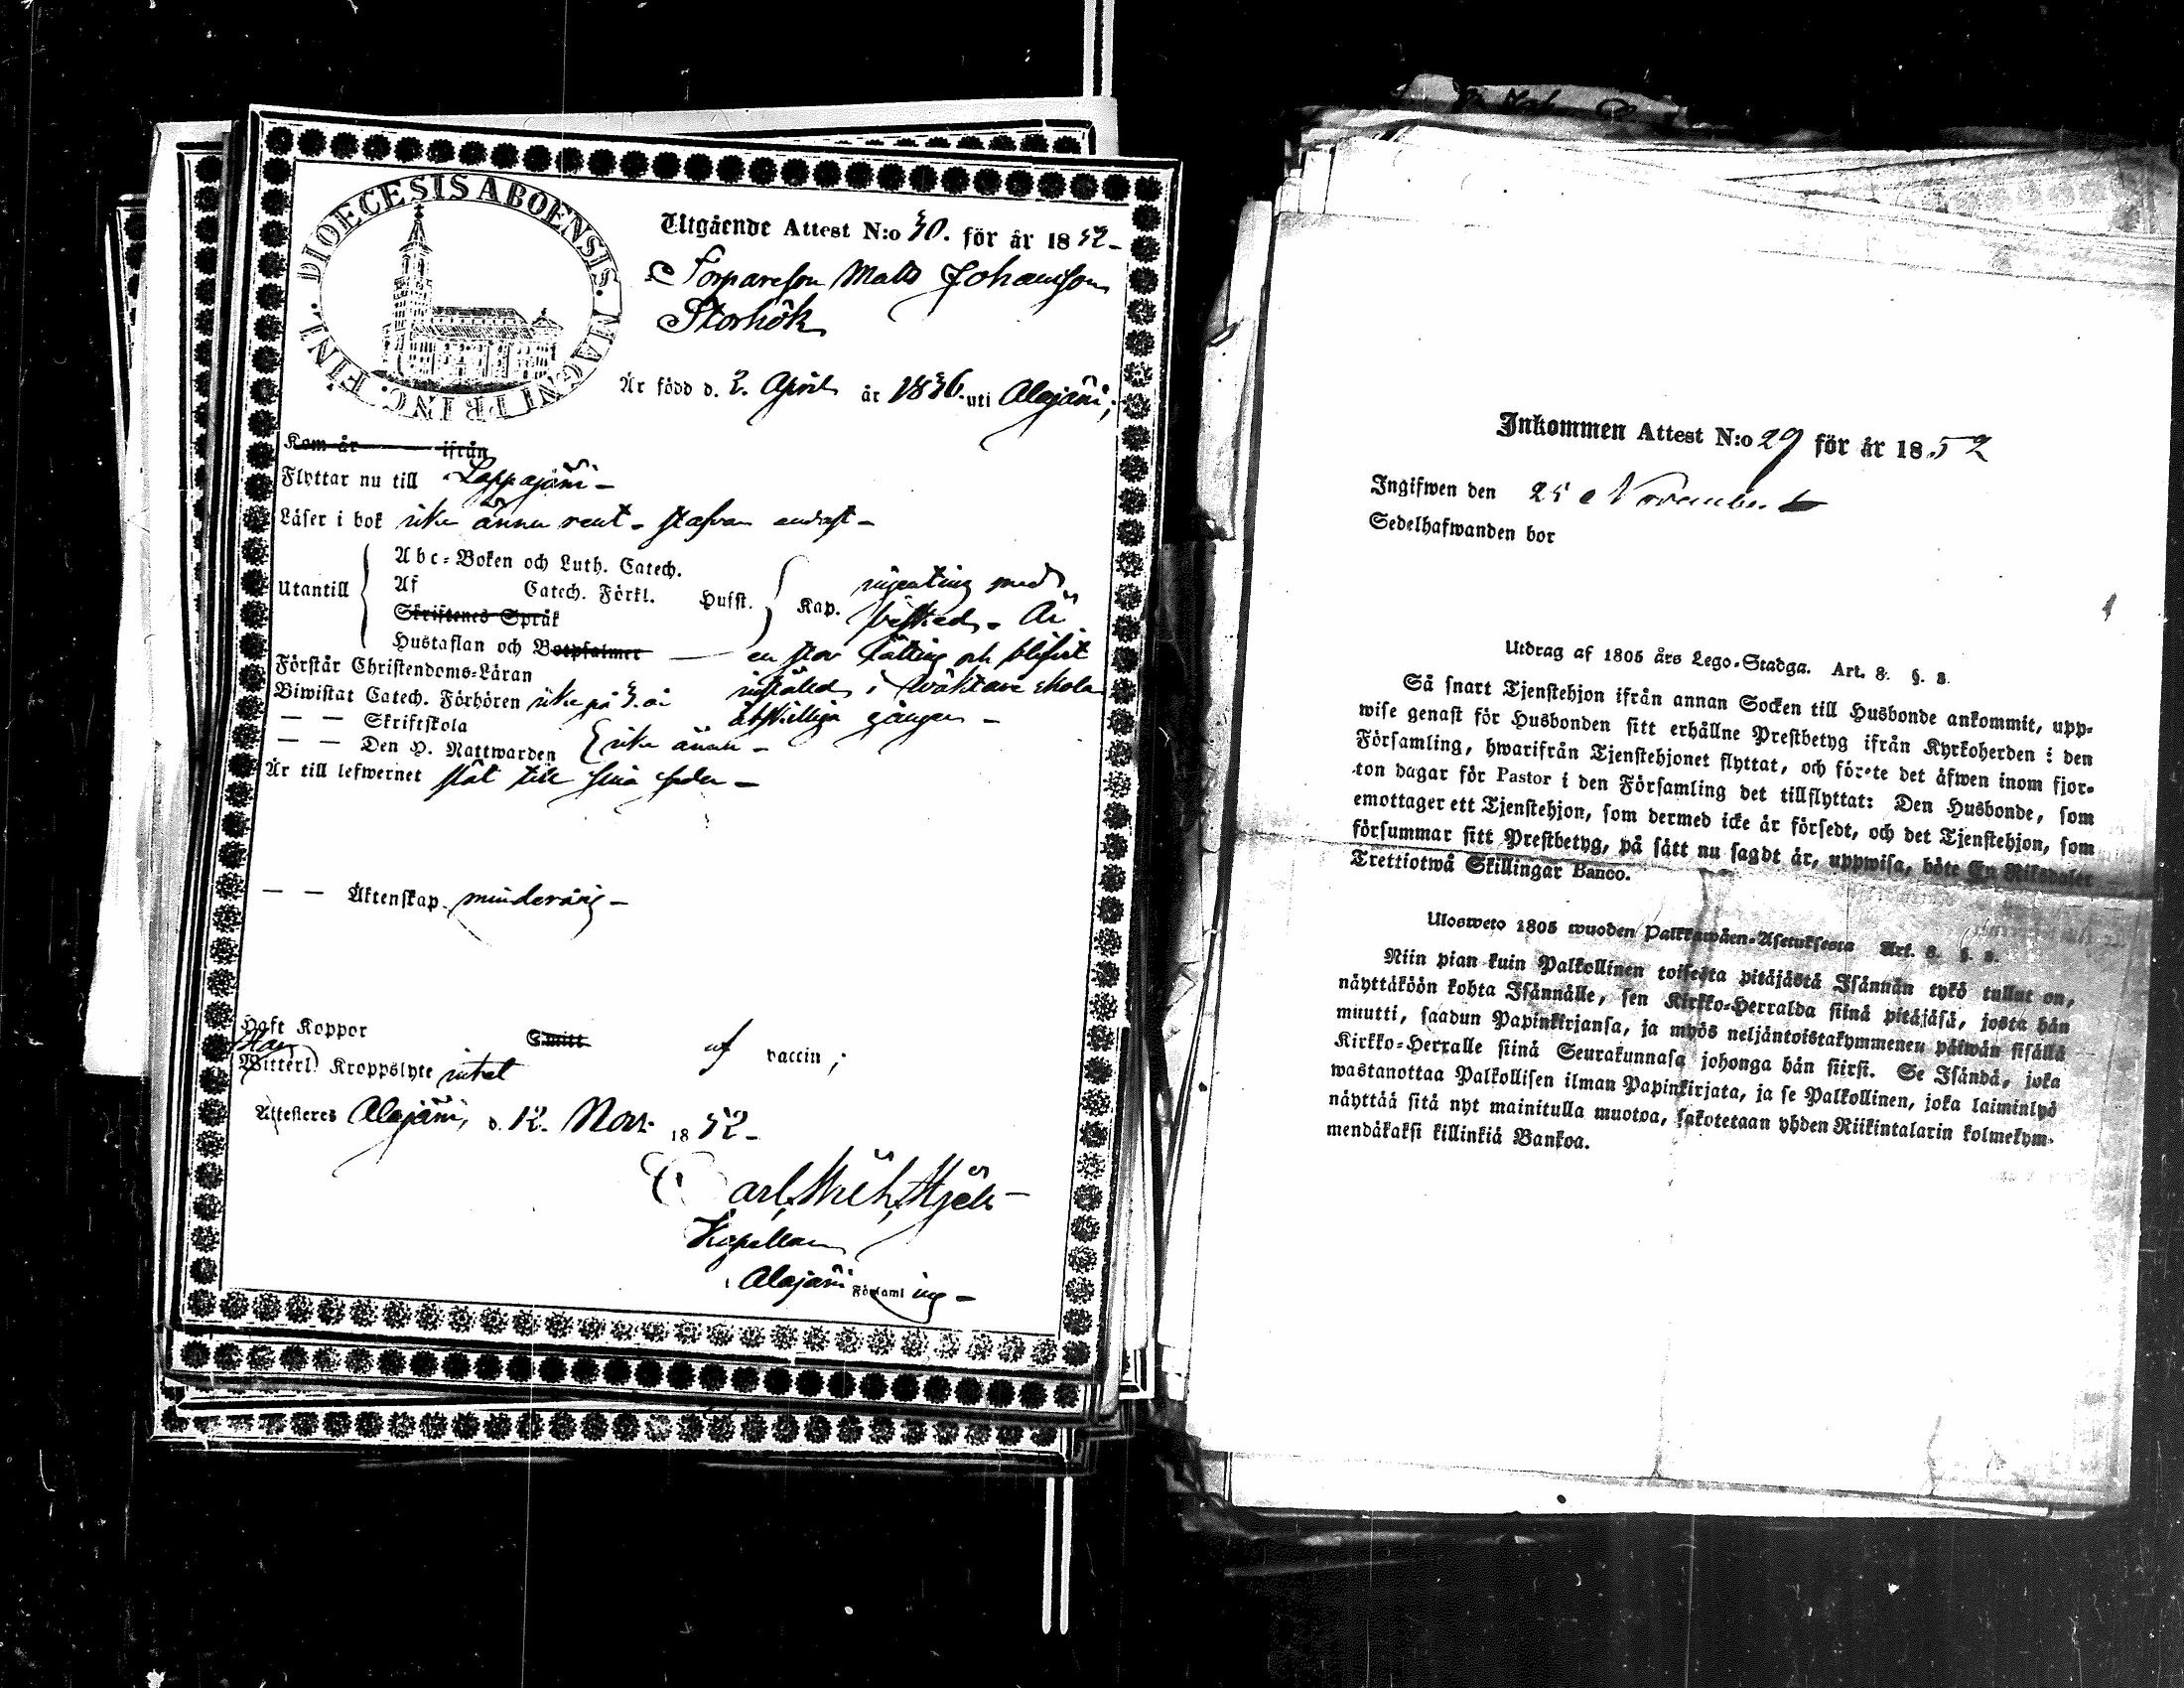 DIOECESIS ABOENSIS. MAGNI PRINC. FINL.
Utgående Attest N:o 50. för år 1852-
Torpareson Matts Johansson
Storhök
Är född d. 2. April år 1836. uti Alajärvi;
Kom år ifrån
Flyttar nu till Lappajärvi -
Läser i bok icke ännu rent - stafvar endast -
Utantill
Abc-Boken och Luth. Catech.
Af Catech. Förkl. Hufst. Kap. ingenting med
Skriftenes Språk besked. Är
Hustaflan och Botpsalmer — en stor lätting och blifvit
Förstår Christendoms-Läran
inställd i Wäktare skola
Biwistat Catech. Förhören icke på 3. år
åtskilliga gånger -
— — Skriftskola
— — Den H. Nattwarden icke ännu -
Är till lefwernet slät till sina seder -
— — Äktenskap minderårig -
Haft Koppor Smitt af vaccin;
Witterl. Kroppslyte intet
Attesteras Alajärvi, d. 12. Nov. 1852-
Carl Wilh.
Kapellan
i Alajärvi Församling -
Inkommen Attest N:o 29 för år 1852
Ingifwen den 25 November
Sedelhafwanden bor
Utdrag af 1805 års Lego-Stadga. Art. 8. §. 8.
Så snart Tjenstehjon ifrån annan Socken till Husbonde ankommit, upp-
wise genast för Husbonden sitt erhållne Prestbetyg ifrån Kyrkoherden i den
Församling, hwarifrån Tjenstehjonet flyttat, och förete det äfwen inom fjor-
ton dagar för Pastor i den Församling det tillflyttat: Den Husbonde, som
emottager ett Tjenstehjon, som dermed icke är försedt, och det Tjenstehjon, som
försummar sitt Prestbetyg, på sätt nu sagdt är, uppwisa, böte En Riksdaler
Trettiotwå Skillingar Banco.
Ulosweto 1805 wuoden Palkkawäen-Asetuksesta Art. 8. §. 8.
Niin pian kuin Palkollinen toisesta pitäjästä Isännän tykö tullut on,
näyttäköön kohta Isännälle, sen Kirkko-Herralda siinä pitäjäsä, josta hän
muutti, saadun Papinkirjansa, ja myös neljäntoistakymmenen päiwän sisällä
Kirkko-Herralle siinä Seurakunnasa johonga hän siirsi. Se Isändä, joka
wastanottaa Palkollisen ilman Papinkirjata, ja se Palkollinen, joka laiminlyö
näyttää sitä nyt mainitulla muotoa, sakotetaan yhden Riikintalarin kolmekym-
mendäkaksi killinkiä Bankoa.